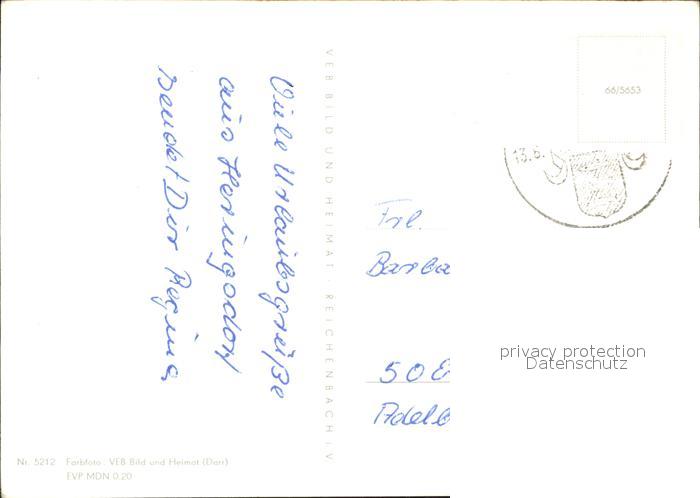 Viele Urlaubsgrüße
aus Heringsdorf
sendet Dir Regina
VEB BILD UND HEIMAT · REICHENBACH i. V
66/5653
13.6.
Frl.
Barba
508
Adelb
privacy protection
Datenschutz
Nr. 5212 Farbfoto: VEB Bild und Heimat (Darr)
EVP MDN 0.20